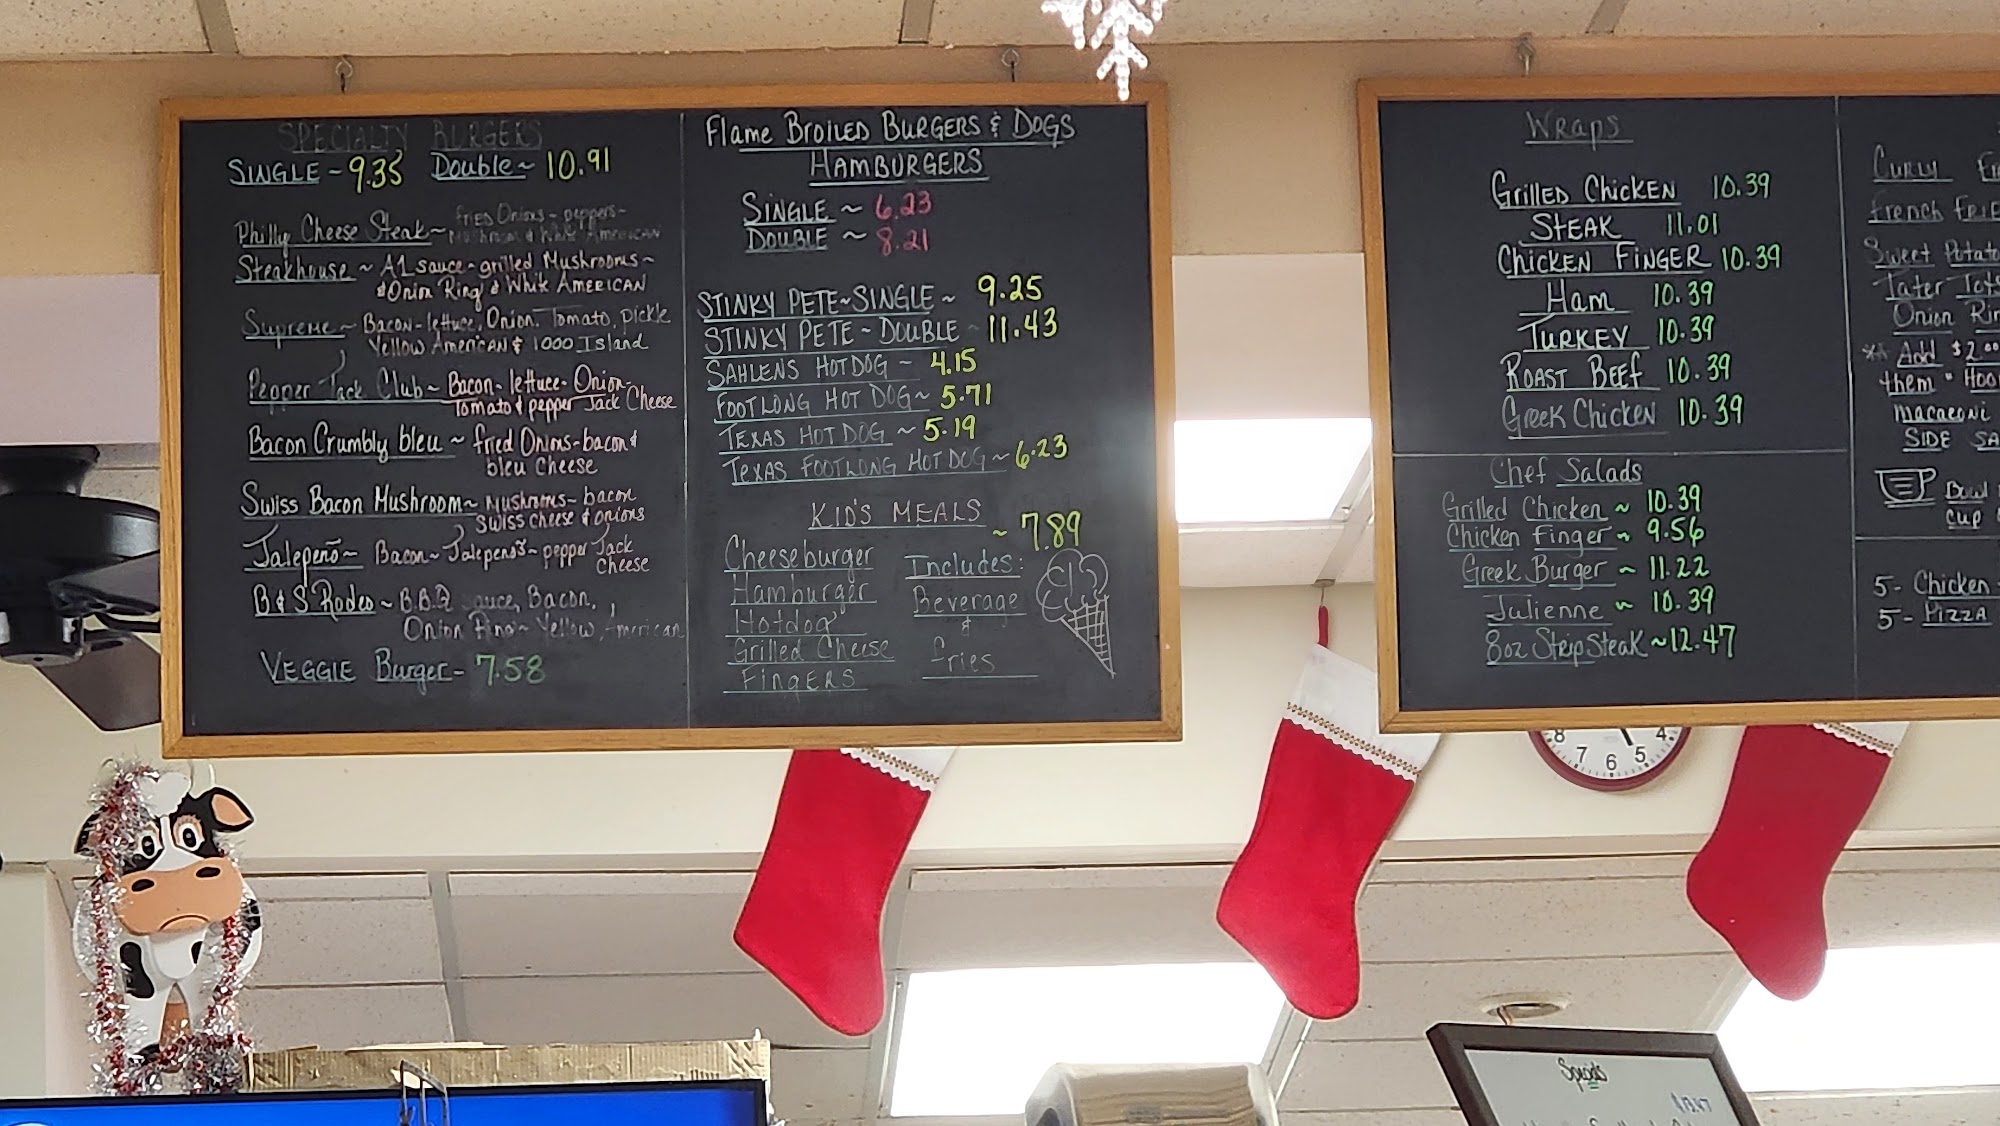 SPECIALTY BURGERS
SINGLE ~ 9.35 Double ~ 10.91
Philly Cheese Steak ~ fried Onions ~ peppers ~
Mushroom & White American
Steakhouse ~ A1 sauce - grilled Mushrooms ~
& Onion Ring & White AMERICAN
Supreme ~ Bacon - lettuce, Onion. Tomato, pickle
Yellow American & 1000 Island
Pepper Jack Club ~ Bacon - lettuce - Onion -
Tomato & pepper Jack Cheese
Bacon Crumbly bleu ~ fried Onions - bacon &
bleu Cheese
Swiss Bacon Mushroom ~ Mushrooms ~ bacon
Swiss cheese & onions
Jalepeño ~ Bacon ~ Jalepeños ~ pepper Jack
cheese
B & S Rodeo ~ B.B.Q sauce, Bacon,
Onion Rings ~ Yellow American
VEGGIE Burger - 7.58
Flame Broiled BURGERS & DOGS
HAMBURGERS
SINGLE ~ 6.23
DOUBLE ~ 8.21
STINKY PETE ~ SINGLE ~ 9.25
STINKY PETE ~ DOUBLE ~ 11.43
SAHLENS HOT DOG ~ 4.15
FOOTLONG HOT DOG ~ 5.71
TEXAS HOT DOG ~ 5.19
TEXAS FOOTLONG HOT DOG ~ 6.23
KID'S MEALS
~ 7.89
Cheeseburger
Hamburger
Hotdog
Grilled Cheese
FINGERS
Includes:
Beverage
&
fries
Wraps
Grilled Chicken 10.39
STEAK 11.01
CHICKEN FINGER 10.39
Ham 10.39
TURKEY 10.39
ROAST BEEF 10.39
Greek Chicken 10.39
Chef Salads
Grilled Chicken ~ 10.39
Chicken Finger ~ 9.56
Greek Burger ~ 11.22
Julienne ~ 10.39
8oz Strip Steak ~ 12.47
Curly
French
Sweet Potato
Tater Tots
Onion
Add $2.00
them
macaroni
SIDE
Bowl
cup
5 - Chicken
5 - PIZZA
8 7 6 5 4